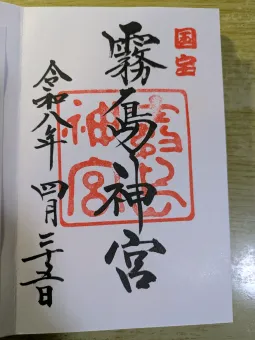 国宝
霧島神宮
霧島神宮
令和八年 四月二十五日